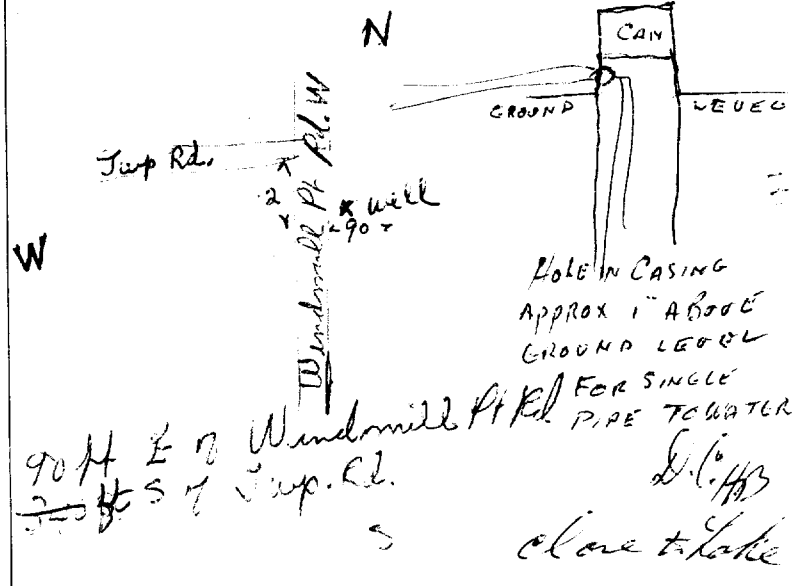 N
CAN
GROUND LEVEL
Twp Rd.
Windmill Pt Rd. W
2
x well
90
W
HOLE IN CASING
APPROX 1" ABOVE
GROUND LEVEL
FOR SINGLE
PIPE TO WATER
90 ft E of Windmill Pt Rd
ft S of Twp. Rd.
S
close to Lake